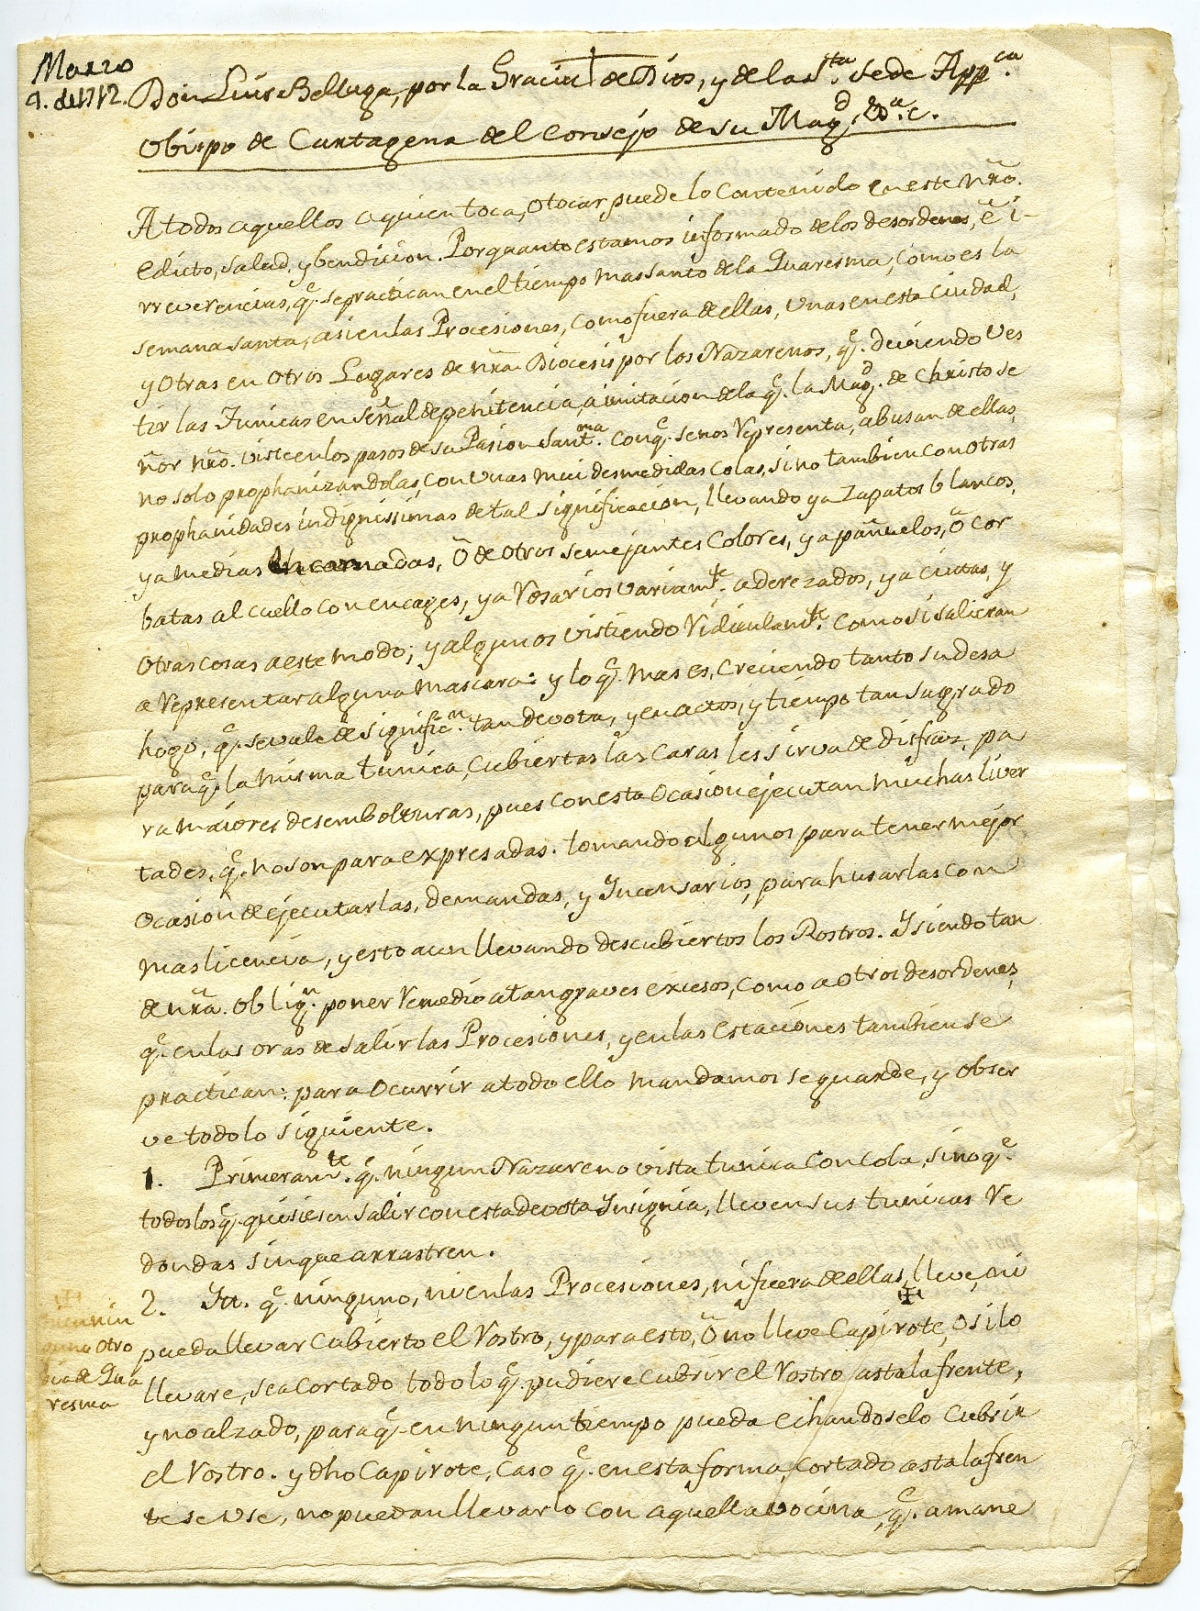 Marzo
9. de 1712.
Don Luis Belluga, por la Gracia de Dios, y de la Sta. Sede Appca
Obispo de Cartagena del Consejo de su Magd. &a.
A todos aquellos aquien toca, o tocar puede lo Contenido en este nro.
edicto, salud, y bendicion. Por quanto estamos informado de los desordenes, è i-
rreverencias, q. se practican en el tiempo mas santo de la Quaresma, como es la
semana santa, asi en las Procesiones, como fuera de ellas, Unas en esta Ciudad,
y Otras en Otros Lugares de nra. Diocesis por los Nazarenos, q. deviendo Ves
tir las Tunicas en Señal de penitencia, a imitacion de la q. la Magd. de Christo Se
ñor nro. viste en los pasos de su Pasion Santma. Con q. se nos Representa, abusan de ellas,
no solo prophanizandolas, con Unas mui desmedidas Colas, sino tambien con Otras
prophanidades indignissimas de tal significacion, llevando ya Zapatos blancos,
ya medias Encarnadas, ô de otros semejantes Colores, ya pañuelos, ô Cor
batas al cuello con encages, ya Rosarios variamte. aderezados, ya cintas, y
Otras cosas a este modo; y algunos vistiendo Ridiculamte. Como si salieran
a Representar alguna mascara: y lo q. mas es, Creciendo tanto su desa
hogo, q. se vale de significn. tan devota, y en actos, y tiempo tan sagrado
para q. la misma tunica, cubiertas las Caras les sirva de disfraz, pa
ra maiores desembolturas, pues con esta Ocasion ejecutan muchas liver
tades, q. no son para expresadas. tomando algunos para tener mejor
Ocasion de ejecutarlas, demandas, y Incensarios, para husarlas con
mas licencia, y esto aun llevando descubiertos los Rostros. Y siendo tan
de nra. Oblign. poner Remedio a tan graves excesos, como a otros desordenes,
q. en las oras de salir las Procesiones, y en las estaciones tambien se
practican: para Ocurrir a todo ello mandamos se guarde, y Obser
ve todo lo siguiente.
1. Primeramte. q. ningun Nazareno vista tunica con Cola, sino q.
todos los q. quisiesen salir con esta devota Insignia, lleven sus tunicas Re
dondas sin que arrastren.
2. Itt. q. ninguno, ni en las Procesiones, ni fuera de ellas, ✠ lleve, ni
pueda llevar Cubierto el Rostro, y para esto, ô no lleve Capirote, o si lo
llevare, sea Cortado todo lo q. pudiere Cubrir el Rostro asta la frente,
y no alzado, para q. en ningun tiempo pueda echandoselo Cubrir
el Rostro. y dho Capirote, Caso q. en esta forma, Cortado asta la fren
te se Use, no puedan llevarlo con aquella vocina, q. a mane
✠
ni en nin
guno otro
dia de Qua
resma